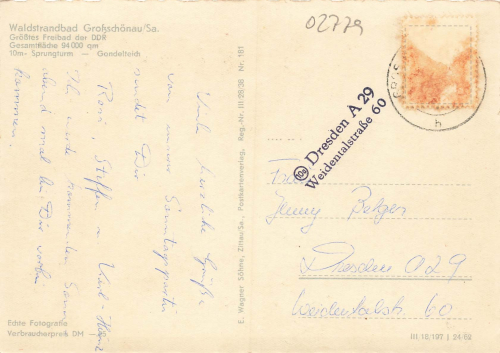 Waldstrandbad Großschönau/Sa.
Größtes Freibad der DDR
Gesamtfläche 94000 qm
10m- Sprungturm — Gondelteich
02779
Viele herzliche Grüße
von unserer Sonntagspartie
sendet Dir
Rosi, Steffen u. Karl-Heinz
kommenden Sonn
abend mal bei Dir vorbei
kommen.
Echte Fotografie
Verbraucherpreis DM
E. Wagner Söhne, Zittau/Sa., Postkartenverlag, Reg.-Nr. III/28/38 Nr. 181
h
10a Dresden A 29
Weidentalstraße 60
Frau
Jenny
Dresden A 29
Weidentalstr. 60
III/18/197 | 24/62